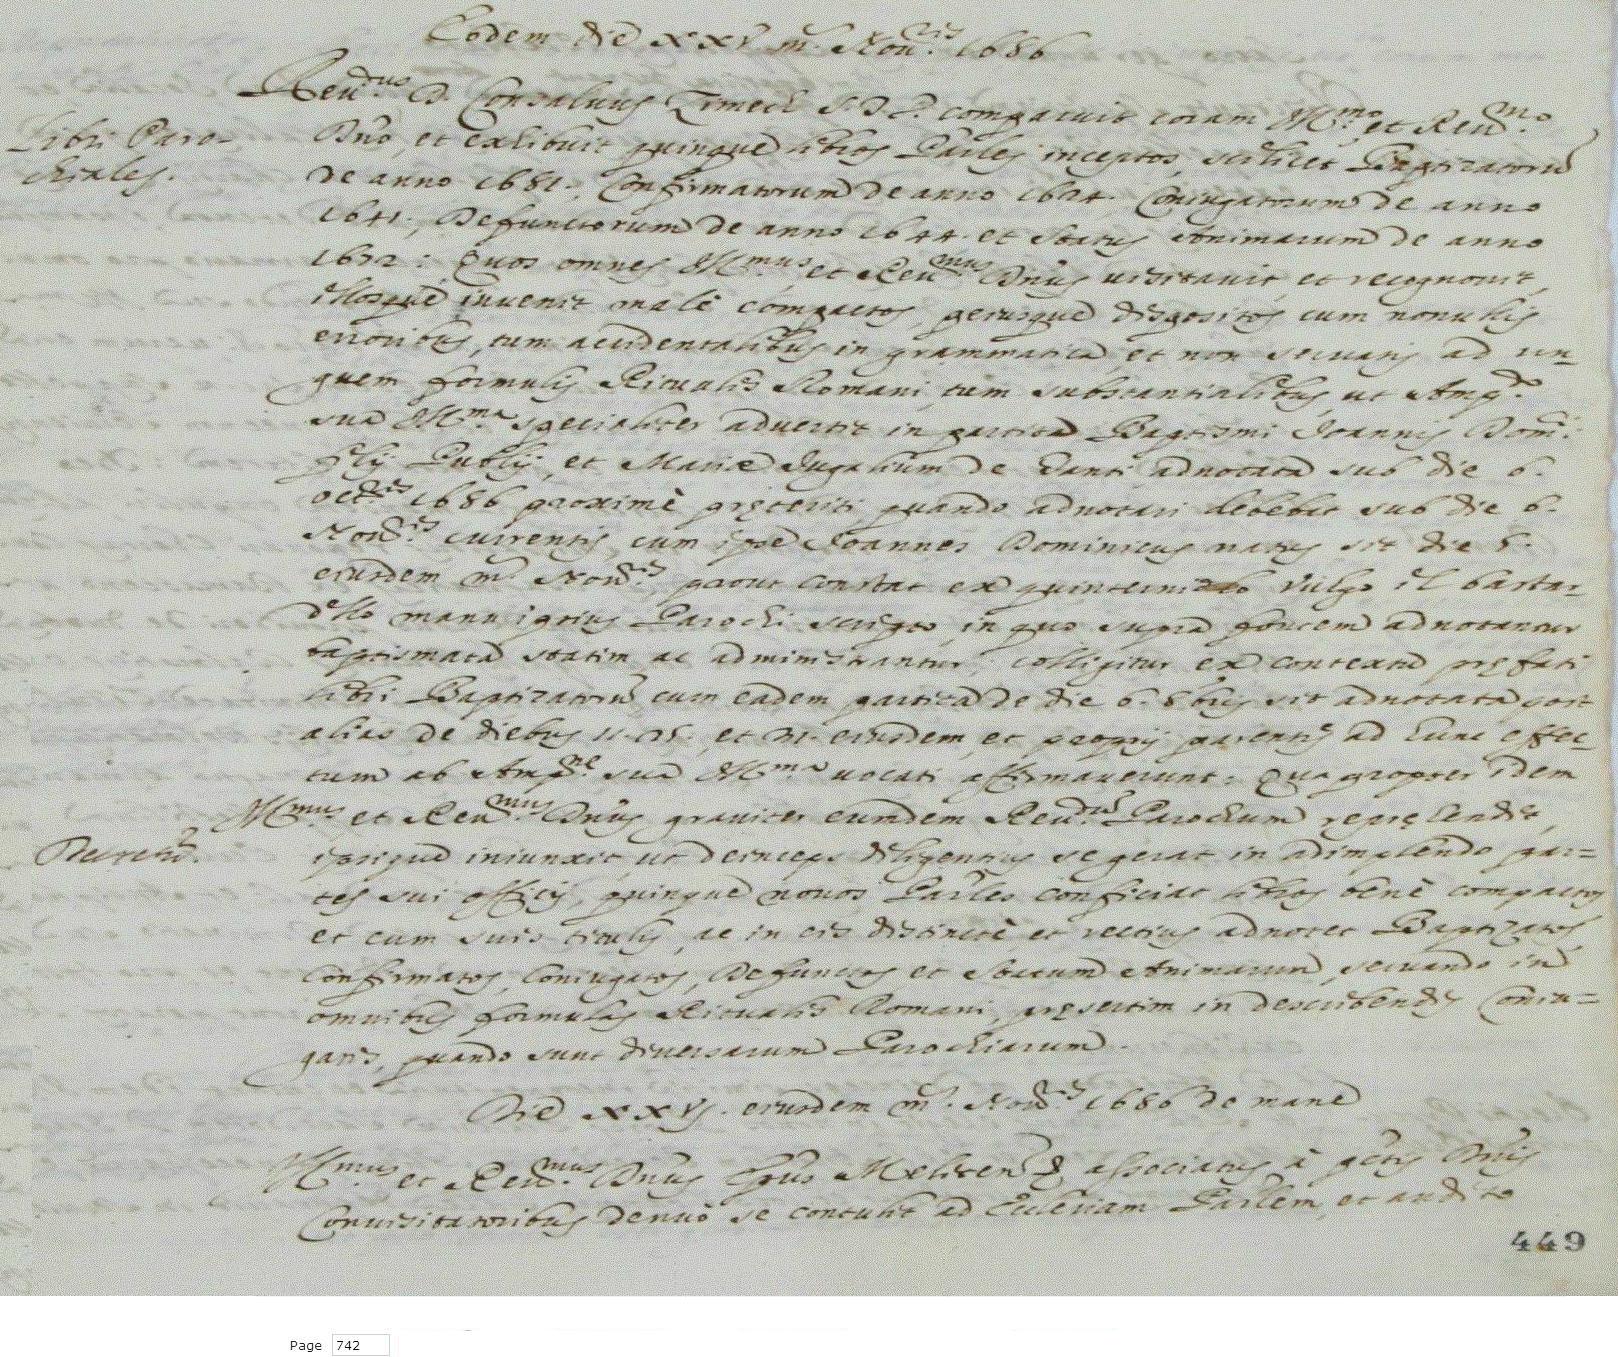 Eodem die XXV m.s Nou.ris 1686
Reu.dus D. Consaluus Ermech S.T.P. comparuit coram Ill.mo et Reu.mo
Libri Paro-
chiales.
Dno, et exhibuit quinque libros Parles inceptos, scilicet Baptizatoru
de anno 1681. Confirmatorum de anno Coniugatorum de anno
Defunctorum de anno 1644. et Status Animarum de anno
Quos omnes Ill.mus et Reu.mus Dnus uisitauit, et recognouit,
illosque inuenit malè compactos, peiusque dispositos cum nonullis
erroribus, tum accidentalibus in grammatica, et non seruatis ad un-
guem formulis Ritualis Romani, tum substantialibus, ut
sua Ill.ma specialiter aduertit in partita Baptismi Joannis Dom.ci
filij Publij, et Mariæ Jugalium de adnotata sub die 6.
1686 proximè pręteriti, quando adnotari debebat sub die 6.
Nou.ris currentis, cum ipse Joannes Dominicus natus sit die 5.
eiusdem m.s Nou.ris, prout constat ex uulgo il bastar-
dello manu ipsius Parochi scripto, in quo supra fontem adnotantur
baptismata statim ac administrantur; colligitur ex contextu pręfati
libri Baptizatorũ cum eadem partita de die 6. 8bris sit adnotata post
alias de diebus et 31. eiusdem, et proprij parentes ad hunc effec-
tum ab sua Ill.ma uocati affirmauerunt. Qua propter idem
Ill.mus et Reu.mus Dnus grauiter eumdem Reu.dum Parochum repręhendit,
Decretũ.
ipsique iniunxit, ut deinceps diligentius se gerat in adimplendo par=
tes sui officij, quinque nouos Parles conficiat libros benè compactos
et cum suis titulis, ac in eis distinctè, et rectius adnotet Baptizatos,
Confirmatos, Coniugatos, Defunctos et Statum Animarum, seruando in
omnibus formulas Ritualis Romani, pręsertim in describendis Coniu=
gatis, quando sunt diuersarum Parochiarum.
Die XXVJ. eiusdem m.s Nou.ris 1686 de mane
Ill.mus et Reu.mus Dnus Epus Meliten associatus à Dnis
Conuisitatoribus denuò se contulit ad Ecclesiam Parlem, et audito
449
Page 742